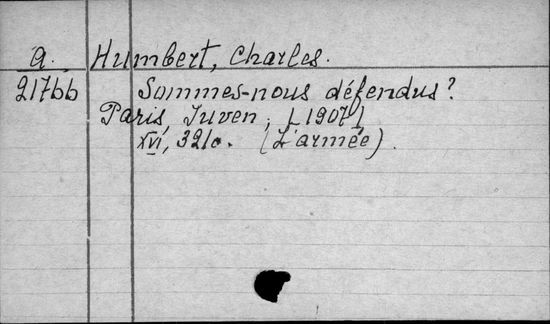 a. Humbert, Charles.
217bb Sommes-nous défendus?
Paris, Juven, [1907]
XVI, 321p. (L'armée).